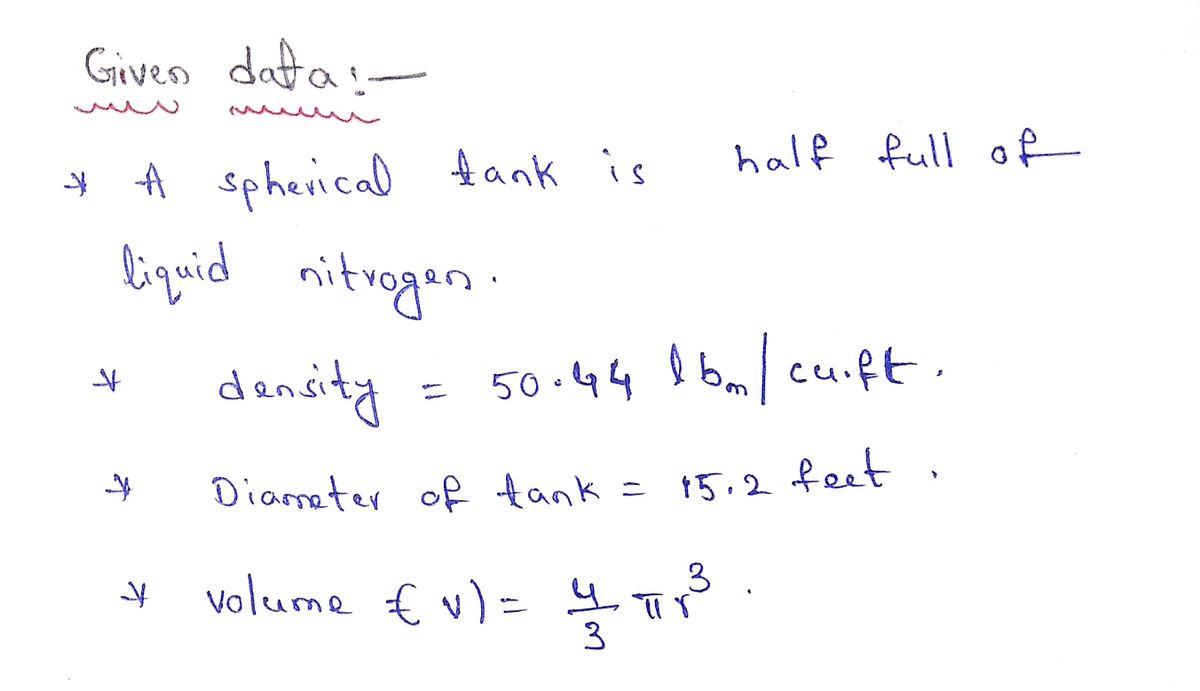 Given data :-
* A spherical tank is half full of
liquid nitrogen.
* density = 50.44 lbm/cu.ft.
* Diameter of tank = 15.2 feet.
* volume (v) = 4/3 πr³.